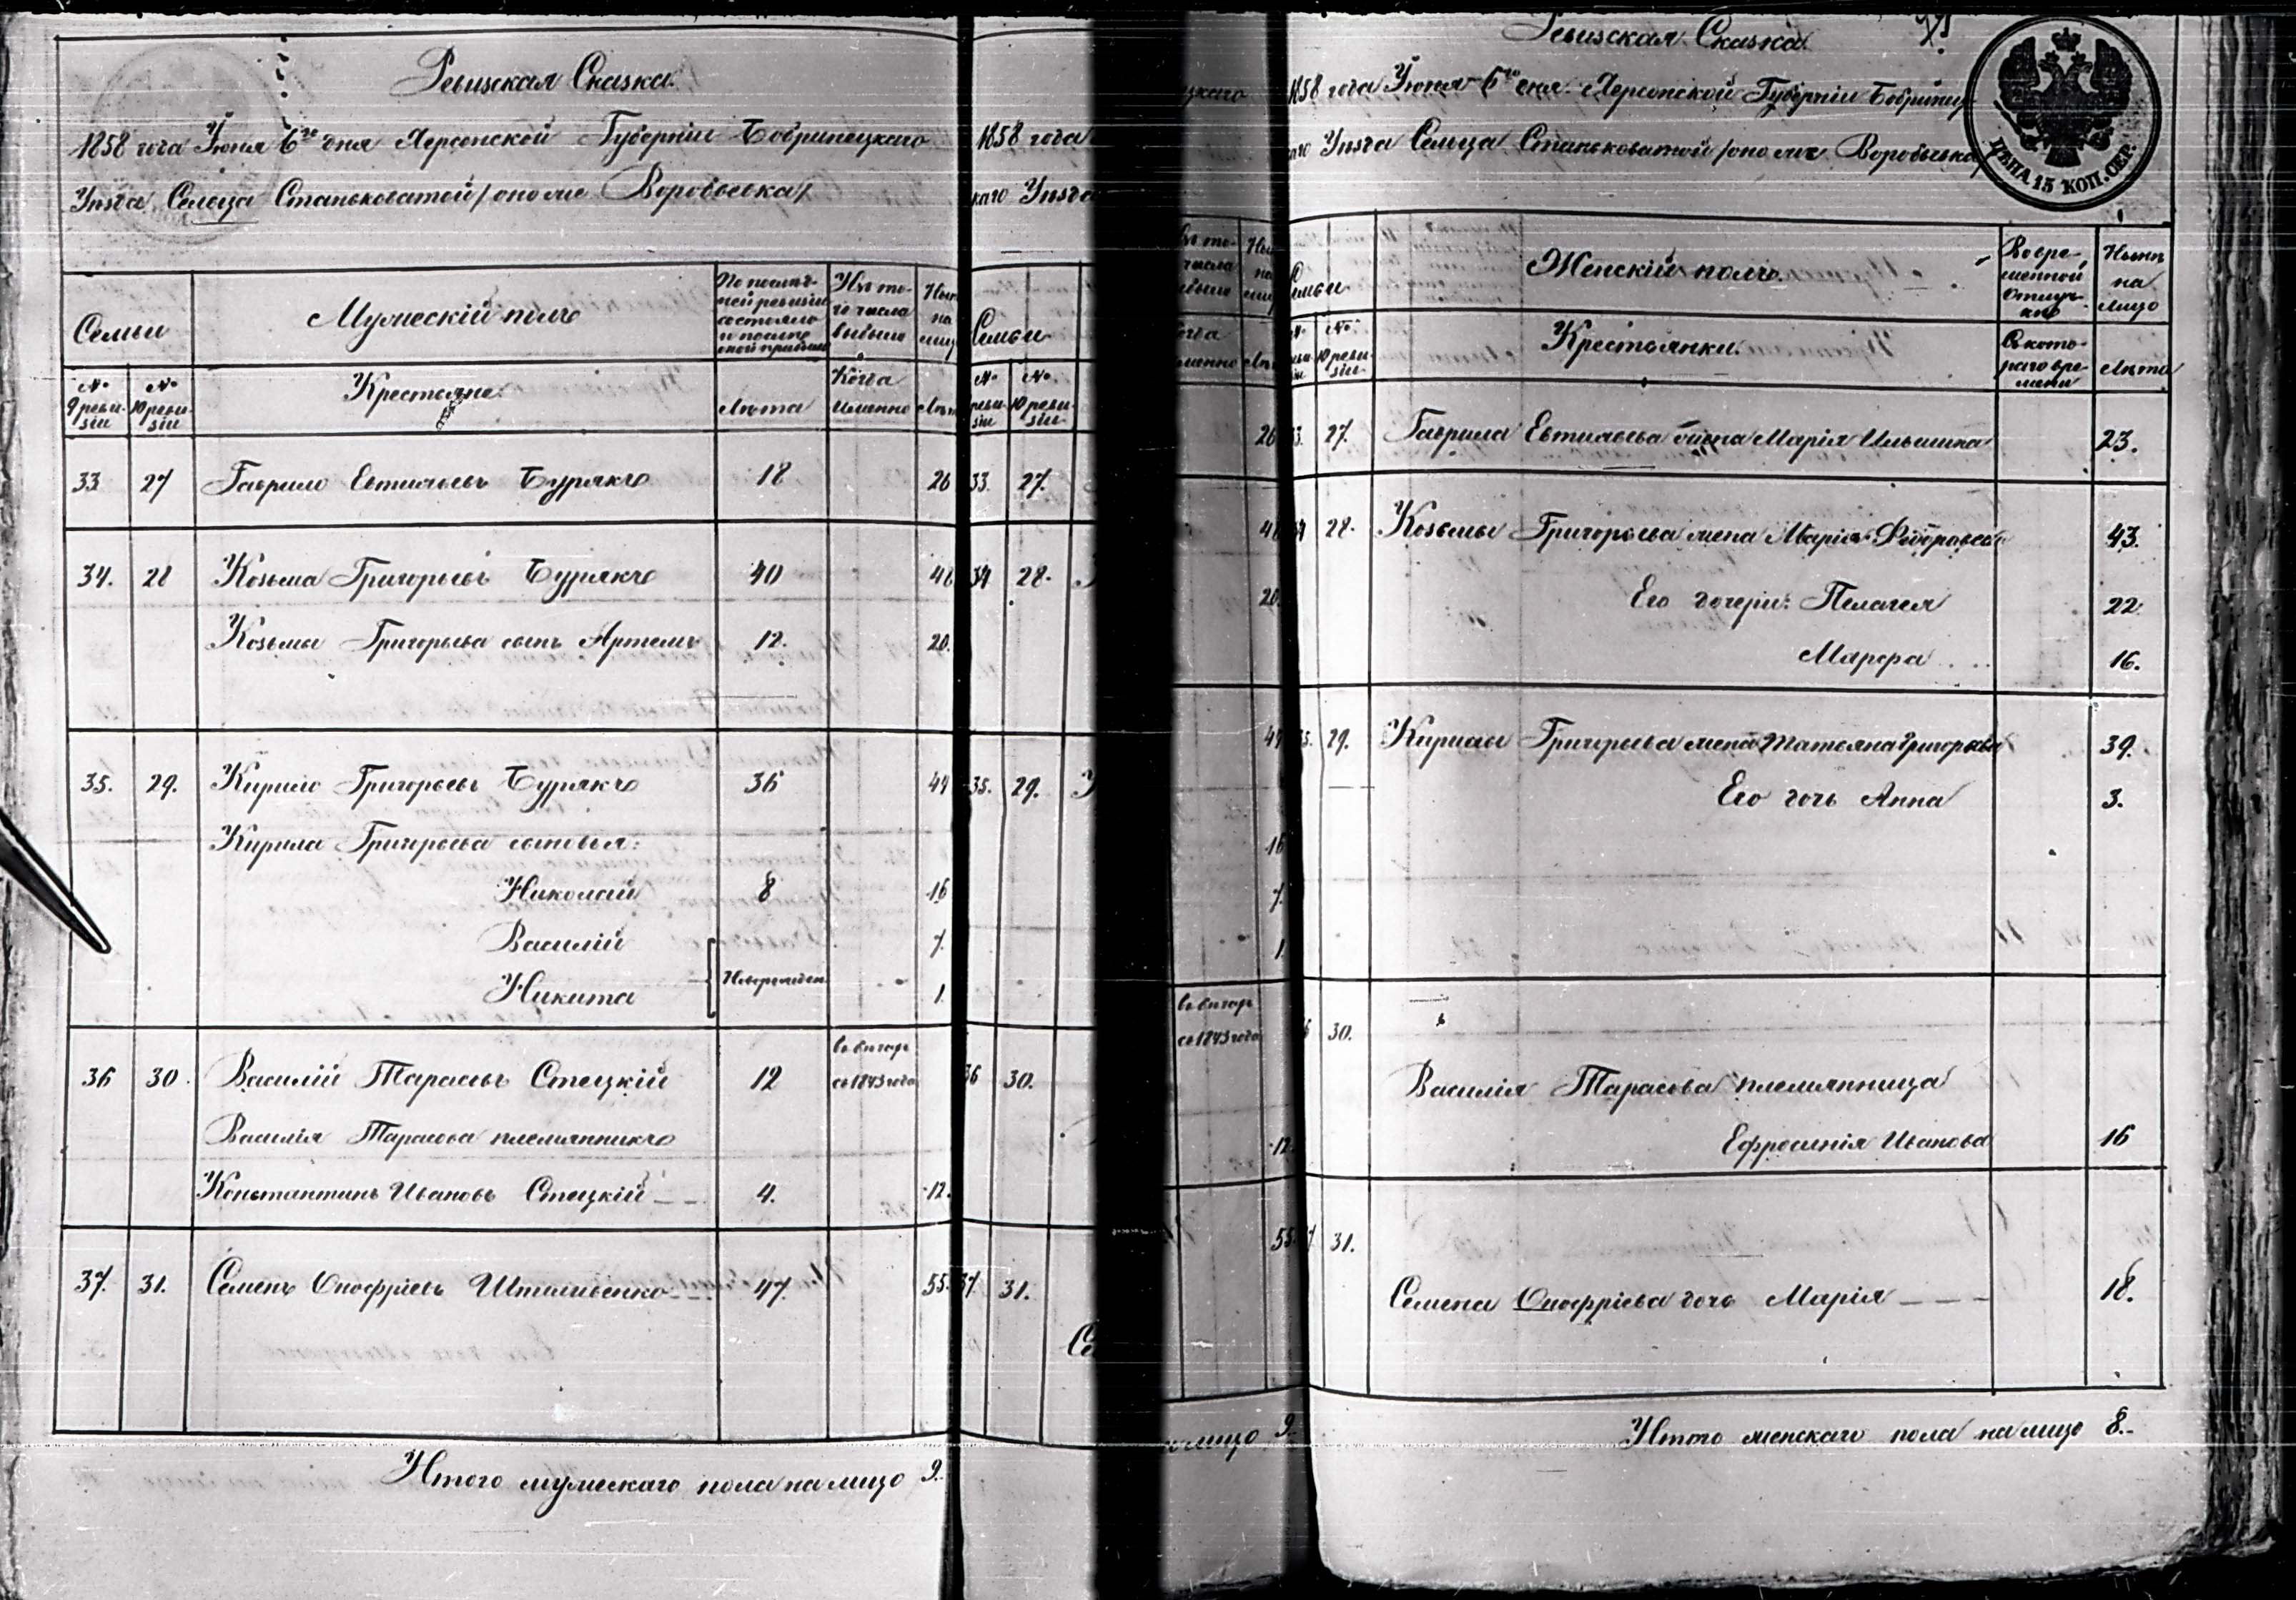 Ревизская Сказка.
1858 года Июня 6го дня Херсонской Губерніи Бобринецкаго
Уезда Сельца Станьковатой /оно же Воробьевка/
Семьи
Мужескій полъ
По послед-
ней ревизіи
состояло
и после
оной прибыло
Изъ то-
го числа
выбыло
Ныне
на
лицо
№
9 реви-
зіи
№
10 реви-
зіи
Крестьяне
Лета
Когда
именно
Лета
33 27 Гаврило Евтиѳьевъ Бурякъ 18 26
34. 28 Козьма Григорьевъ Бурякъ 40 48
Козьмы Григорьева сынъ Артемъ 12. 20.
35. 29. Кирило Григорьевъ Бурякъ 36 44
Кирила Григорьева сыновья:
Николай 8 16
Василій 7.
Никита Новорожден. 1.
36 30. Василій Тарасовъ Стецкій 12 въ бегахъ
съ 1843 года
Василія Тарасова племянникъ
Константинъ Ивановъ Стецкій 4. 12.
37. 31. Семенъ Онофріевъ 47. 55.
Итого мужескаго пола на лицо 9.
1858 года
каго Уезда
Семьи
№
реви-
зіи
№
10 реви-
зіи
33. 27.
34 28.
35. 29.
36 30.
37. 31.
26
48
20.
44
16
7.
1.
въ бегахъ
съ 1843 года
12.
55.
лицо 9.
Ревизская Сказка.
1858 года Июня 6го дня Херсонской Губерніи Бобринец-
каго Уезда Сельца Станьковатой /оно же Воробьевка/
ЦѢНА 15 КОП. СЕР.
Семьи
Женскій полъ.
Во вре-
менной
отлуч-
ке
Ныне
на
лицо
№
10 реви-
зіи
Крестьянки.
Съ кото-
раго вре-
мени
Лета
27. Гаврила Евтиѳьева жена Марія Ильина 23.
28. Козьмы Григорьева жена Марія Федорова 43.
Его дочери: Пелагея 22.
Марфа 16.
29. Кирилы Григорьева жена Татьяна Григорьева 39.
Его дочь Анна 3.
30.
Василія Тарасова племянница
Ефросинія Иванова 16
31.
Семена Онофріева дочь Марія 18.
Итого женскаго пола на лицо 8.